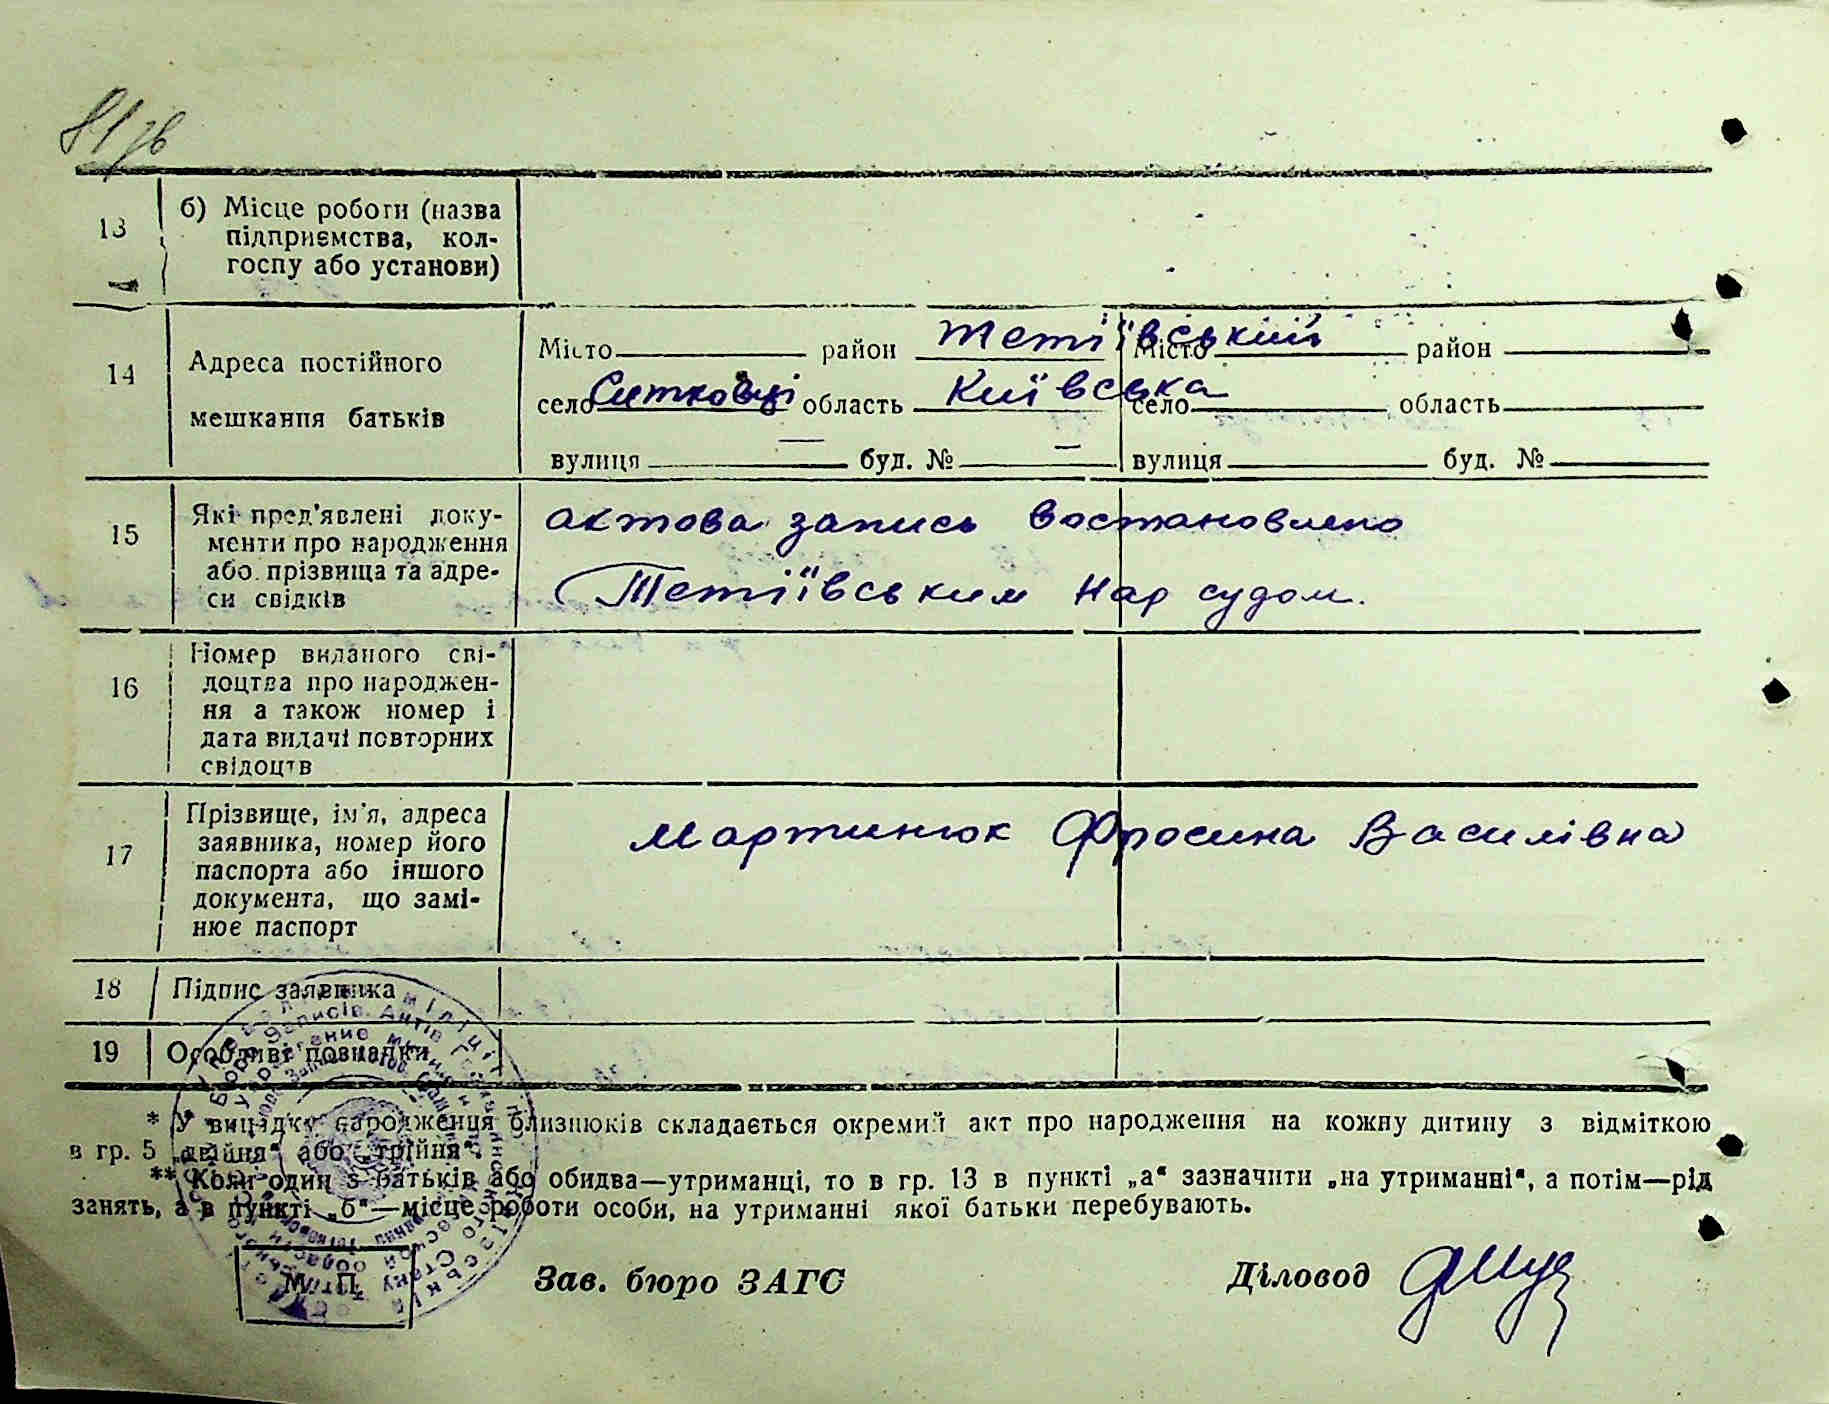 81зв
13 б) Місце роботи (назва
підприємства, кол-
госпу або установи)
14 Адреса постійного
мешкання батьків
Місто район Тетіївський Місто район
село Ситківці область Київська село область
вулиця — буд. № — вулиця буд. №
15 Які пред'явлені доку-
менти про народження
або прізвища та адре-
си свідків
актова запись востановлено
Тетіївським Нар судом.
16 Номер виданого сві-
доцтва про народжен-
ня а також номер і
дата видачі повторних
свідоцтв
17 Прізвище, ім'я, адреса
заявника, номер його
паспорта або іншого
документа, що замі-
нює паспорт
Мартинюк Фросина Василівна
18 Підпис заявника
19 Особливі познаки
* У випадку народження близнюків складається окремий акт про народження на кожну дитину з відміткою
в гр. 5 „двійня“ або „трійня“.
** Коли один з батьків або обидва—утриманці, то в гр. 13 в пункті „а“ зазначити „на утриманні“, а потім—рід
занять, а в пункті „б“—місце роботи особи, на утриманні якої батьки перебувають.
М. П. Зав. бюро ЗАГС Діловод